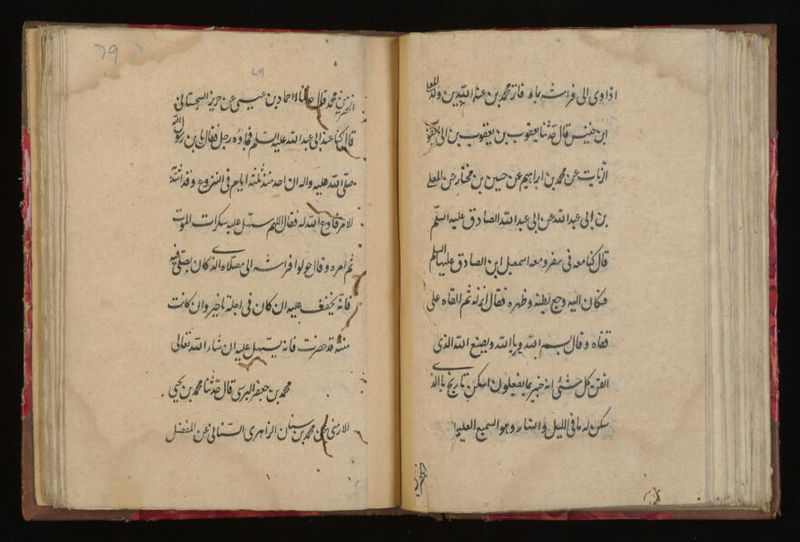 اذا اوى الى فراشه بماء فاز محمد بن عبد الله بن
قال حدثنا يعقوب بن يعقوب بن
الزيات عن محمد بن ابراهيم عن حسين بن مختار عن المعلى
بن ابى عبد الله عن ابى عبد الله الصادق عليه السلم
قال كنا معه فى سفر و معه اسمعيل ابن الصادق عليه السلم
فكان اليه وجع بطنه وظهره فقال انزله ثم القاه على
قفاه و قال بسم الله و بالله و بصنع الله الذى
اتقن كل شئ انه خبير بما يفعلون اسكن يا ريح بالذ
سكن له ما فى الليل و النهار وهو السميع العليم
79
بن محمد قال حدثنا حماد بن عيسى عن حريز السجستانى
قال كنا عند ابى عبد الله عليه السلم فجاءه رجل فقال يا بن رسول الله
صلى الله عليه واله ان احد منذ ثلثة ايام فى النزوع و قد اشتد
الامر فادع الله له فقال اللهم سهل عليه سكرات الموت
ثم امره و قال حولوا فراشه الى مصلاه الذى كان يصلى فيه
فانه يخفف عليه ان كان فى اجله تاخير و ان كانت
منيته قد حضرت فانه يسهل عليه ان شاء الله تعالى
محمد بن جعفر البرسى قال حدثنا محمد بن يحيى
الارمنى عن محمد بن سنان الزاهرى السنانى عن المفضل